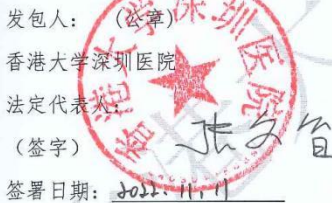 发包人：（公章）
香港大学深圳医院
法定代表人：
（签字）
签署日期：2022.11.11
香港大学深圳医院